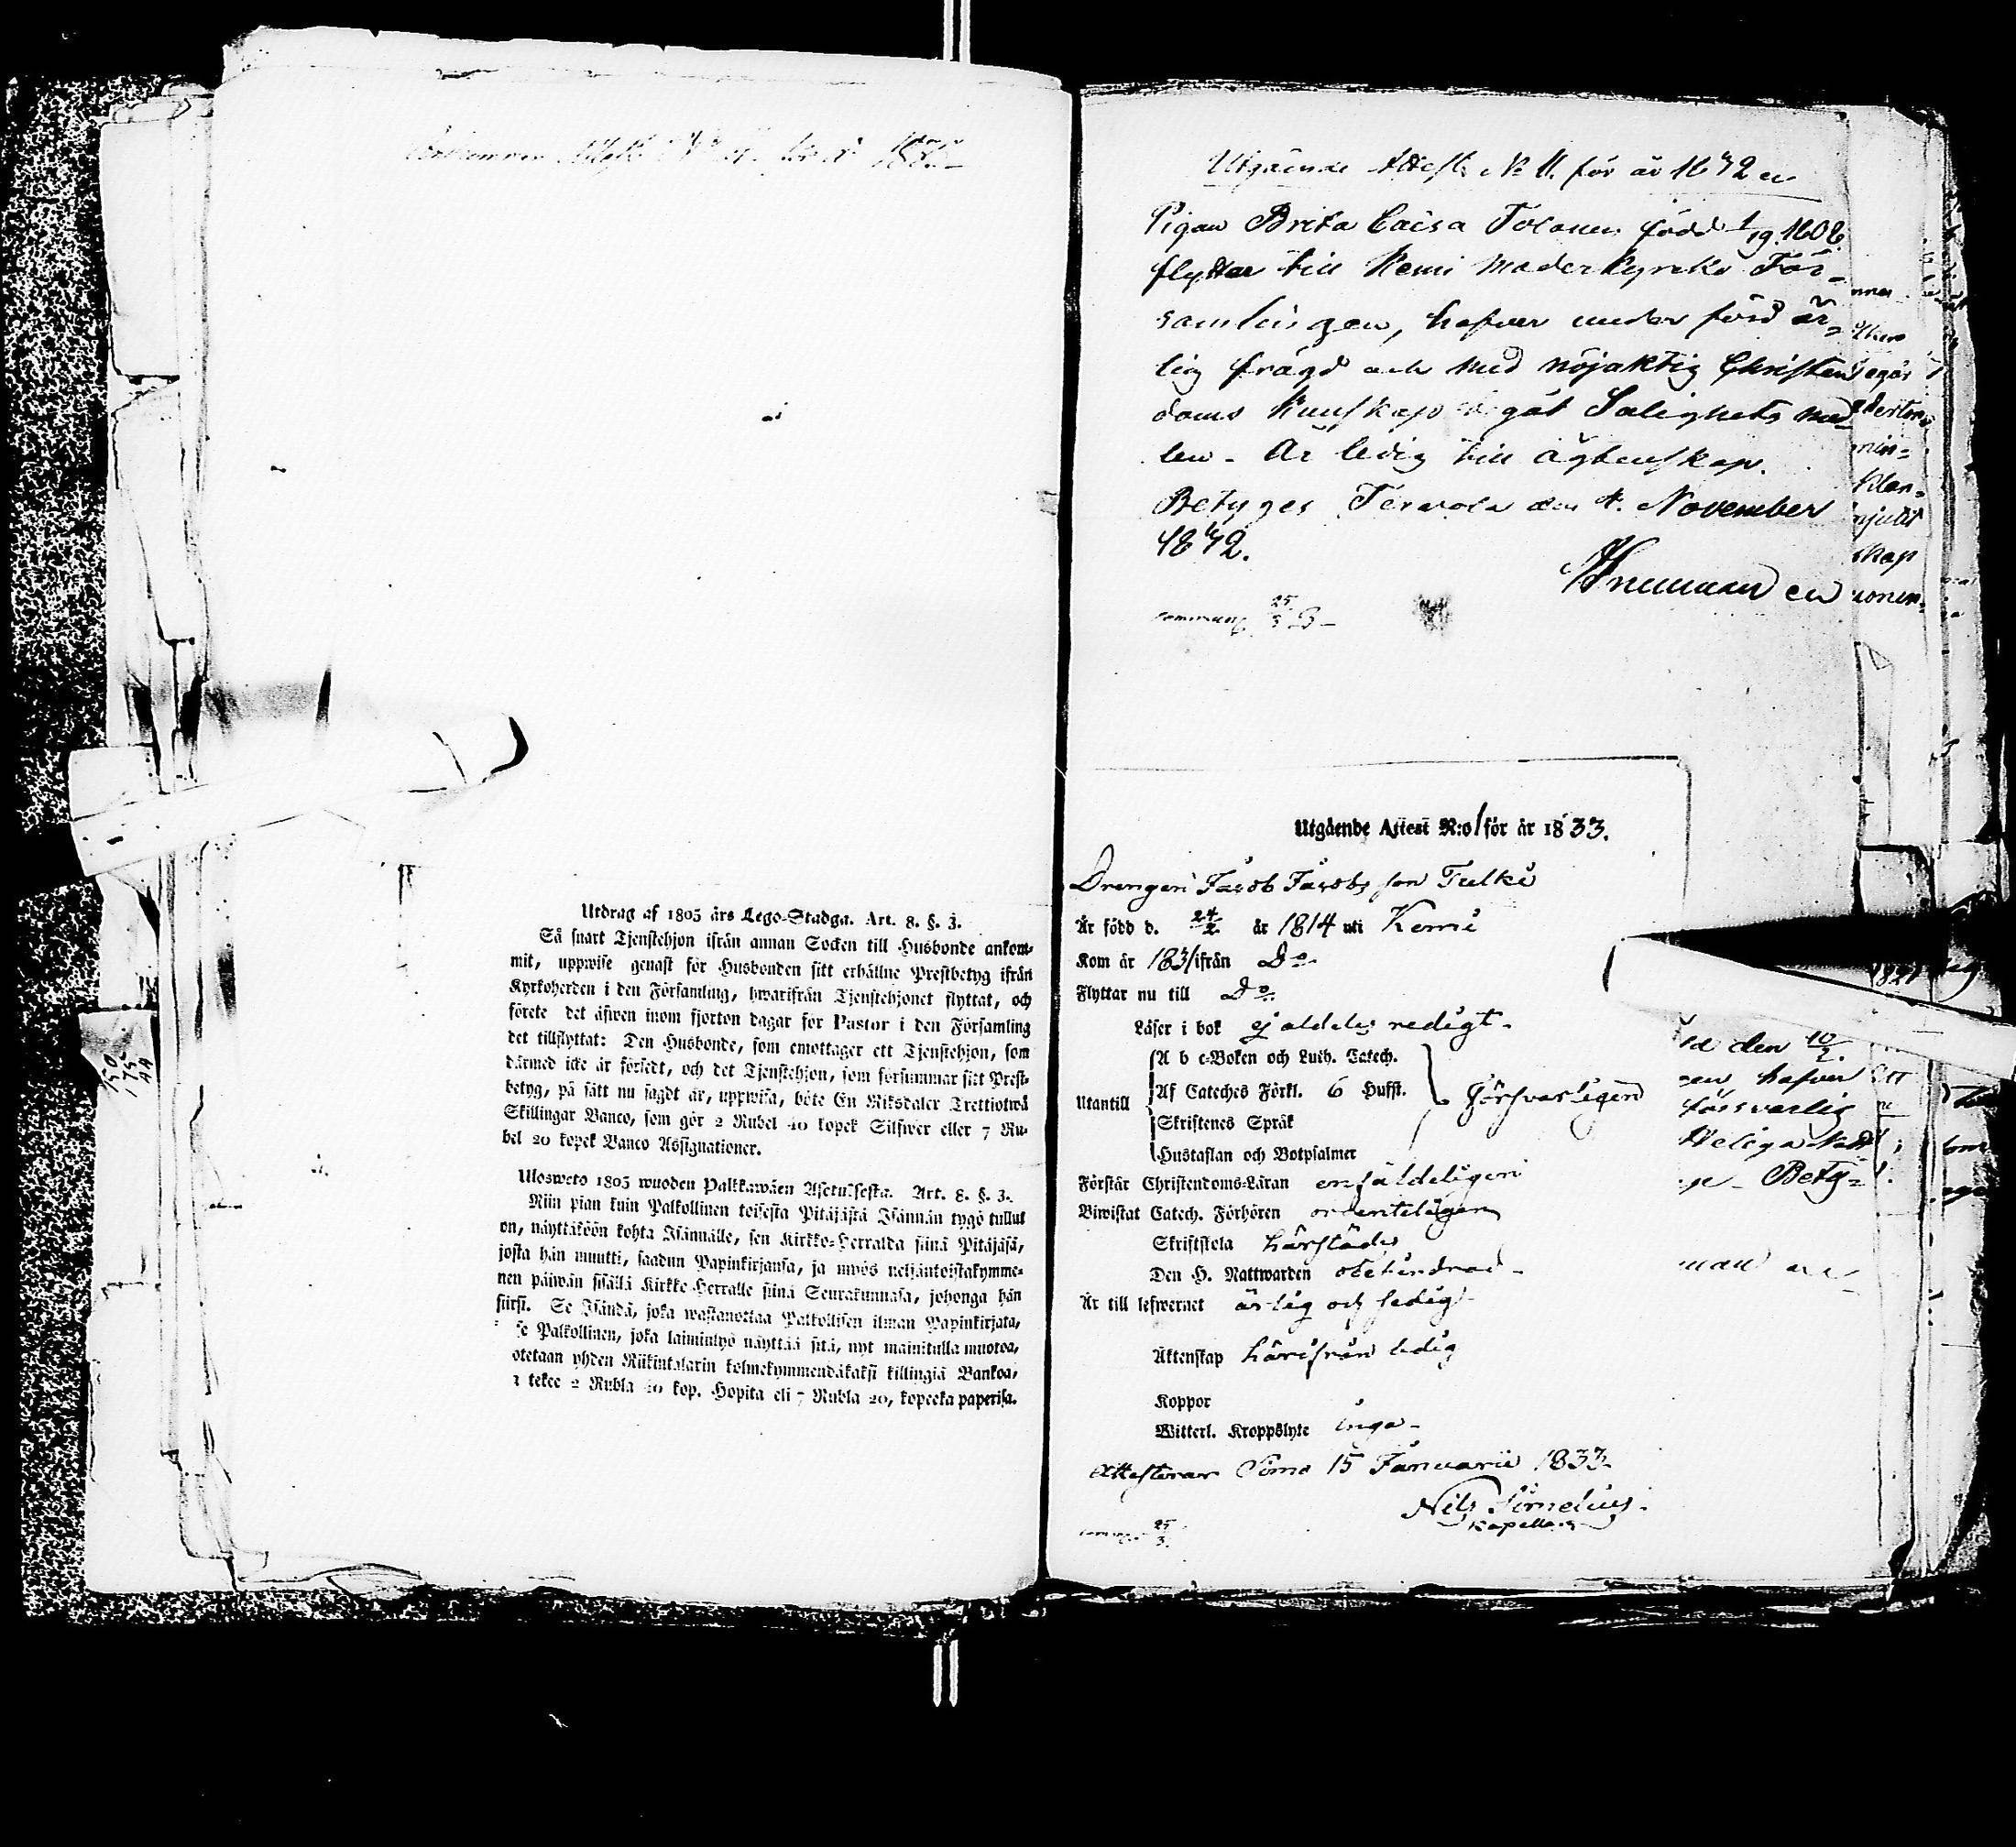 Utdrag af 1805 års Lego-Stadga. Art. 8. §. 3.
Så snart Tjenstehjon ifrån annan Socken till Husbonde ankom-
mit, uppwise genast för Husbonden sitt erhållne Prestbetyg ifrån
Kyrkoherden i den Församling, hwarifrån Tjenstehjonet flyttat, och
förete det äfwen inom fjorton dagar för Pastor i den Församling
det tillflyttat: Den Husbonde, som emottager ett Tjenstehjon, som
därmed icke är försedt, och det Tjenstehjon, som försummar sitt Prest-
betyg, på sätt nu sagdt är, uppwisa, böte En Riksdaler Trettiotwå
Skillingar Banco, som gör 2 Rubel 40 kopek Silfwer eller 7 Ru-
bel 20 kopek Banco Assignationer.
Ulosweto 1805 wuoden Palkkawäen Asetuksesta. Art. 8. §. 3.
Niin pian kuin Palkollinen toisesta Pitäjästä Isännän tygö tullut
on, näyttäköön kohta Isännälle, sen Kirkko-Herralda siinä Pitäjäsä,
josta hän muutti, saadun Papinkirjansa, ja myös neljäntoistakymme-
nen päiwän sisällä Kirkko-Herralle siinä Seurakunnasa, johonga hän
siirsi. Se Isändä, joka wastanottaa Palkollisen ilman Papinkirjata,
se Palkollinen, joka laiminlyö näyttää sitä, nyt mainitulla muotoa,
otetaan yhden Riikintalarin kolmekymmendäkaksi killingiä Bankoa,
tekee 2 Rubla 40 kop. Hopita eli 7 Rubla 20, kopeeka paperisa.
Utgående Attest No 11. för år 1842
Pigan Brita Caisa Tolonen född 1/19. 1808
flyttar till Kemi Moderkyrko För-
samlingen, hafver under förd är-
lig frägd och med nöjaktig Christen
doms Kunskap begåt Salighets med
len. Är ledig till Ägtenskap.
Betyges Tervola den 4. November
1842.
25/3
Utgående Attest N:o 1 för år 1833.
Drengen Jacob Jacobs son Tulki
Är född d. 24/2 år 1814 uti Kemi
Kom år 1831 ifrån Do
Flyttar nu till Do
Läser i bok ej aldeles redigt.
Utantill
A b c-Boken och Luth. Catech.
Af Cateches Förkl. 6 Hufst.
Försvarligen
Skriftenes Språk
Hustaflan och Botpsalmer
Förstår Christendoms-Läran enfäldeligen
Biwistat Catech. Förhören ordenteligen
Skriftskola härstädes
Den H. Nattwarden obehindrad
Är till lefwernet ärlig och sedig
Äktenskap härifrån ledig
Koppor
Witterl. Kroppslyte inga
Attesterar Simo 15 Januarii 1833.
Nils
Kapellan
den 10/2.
hafver
försvarlig
Heliga Natt
Betyg